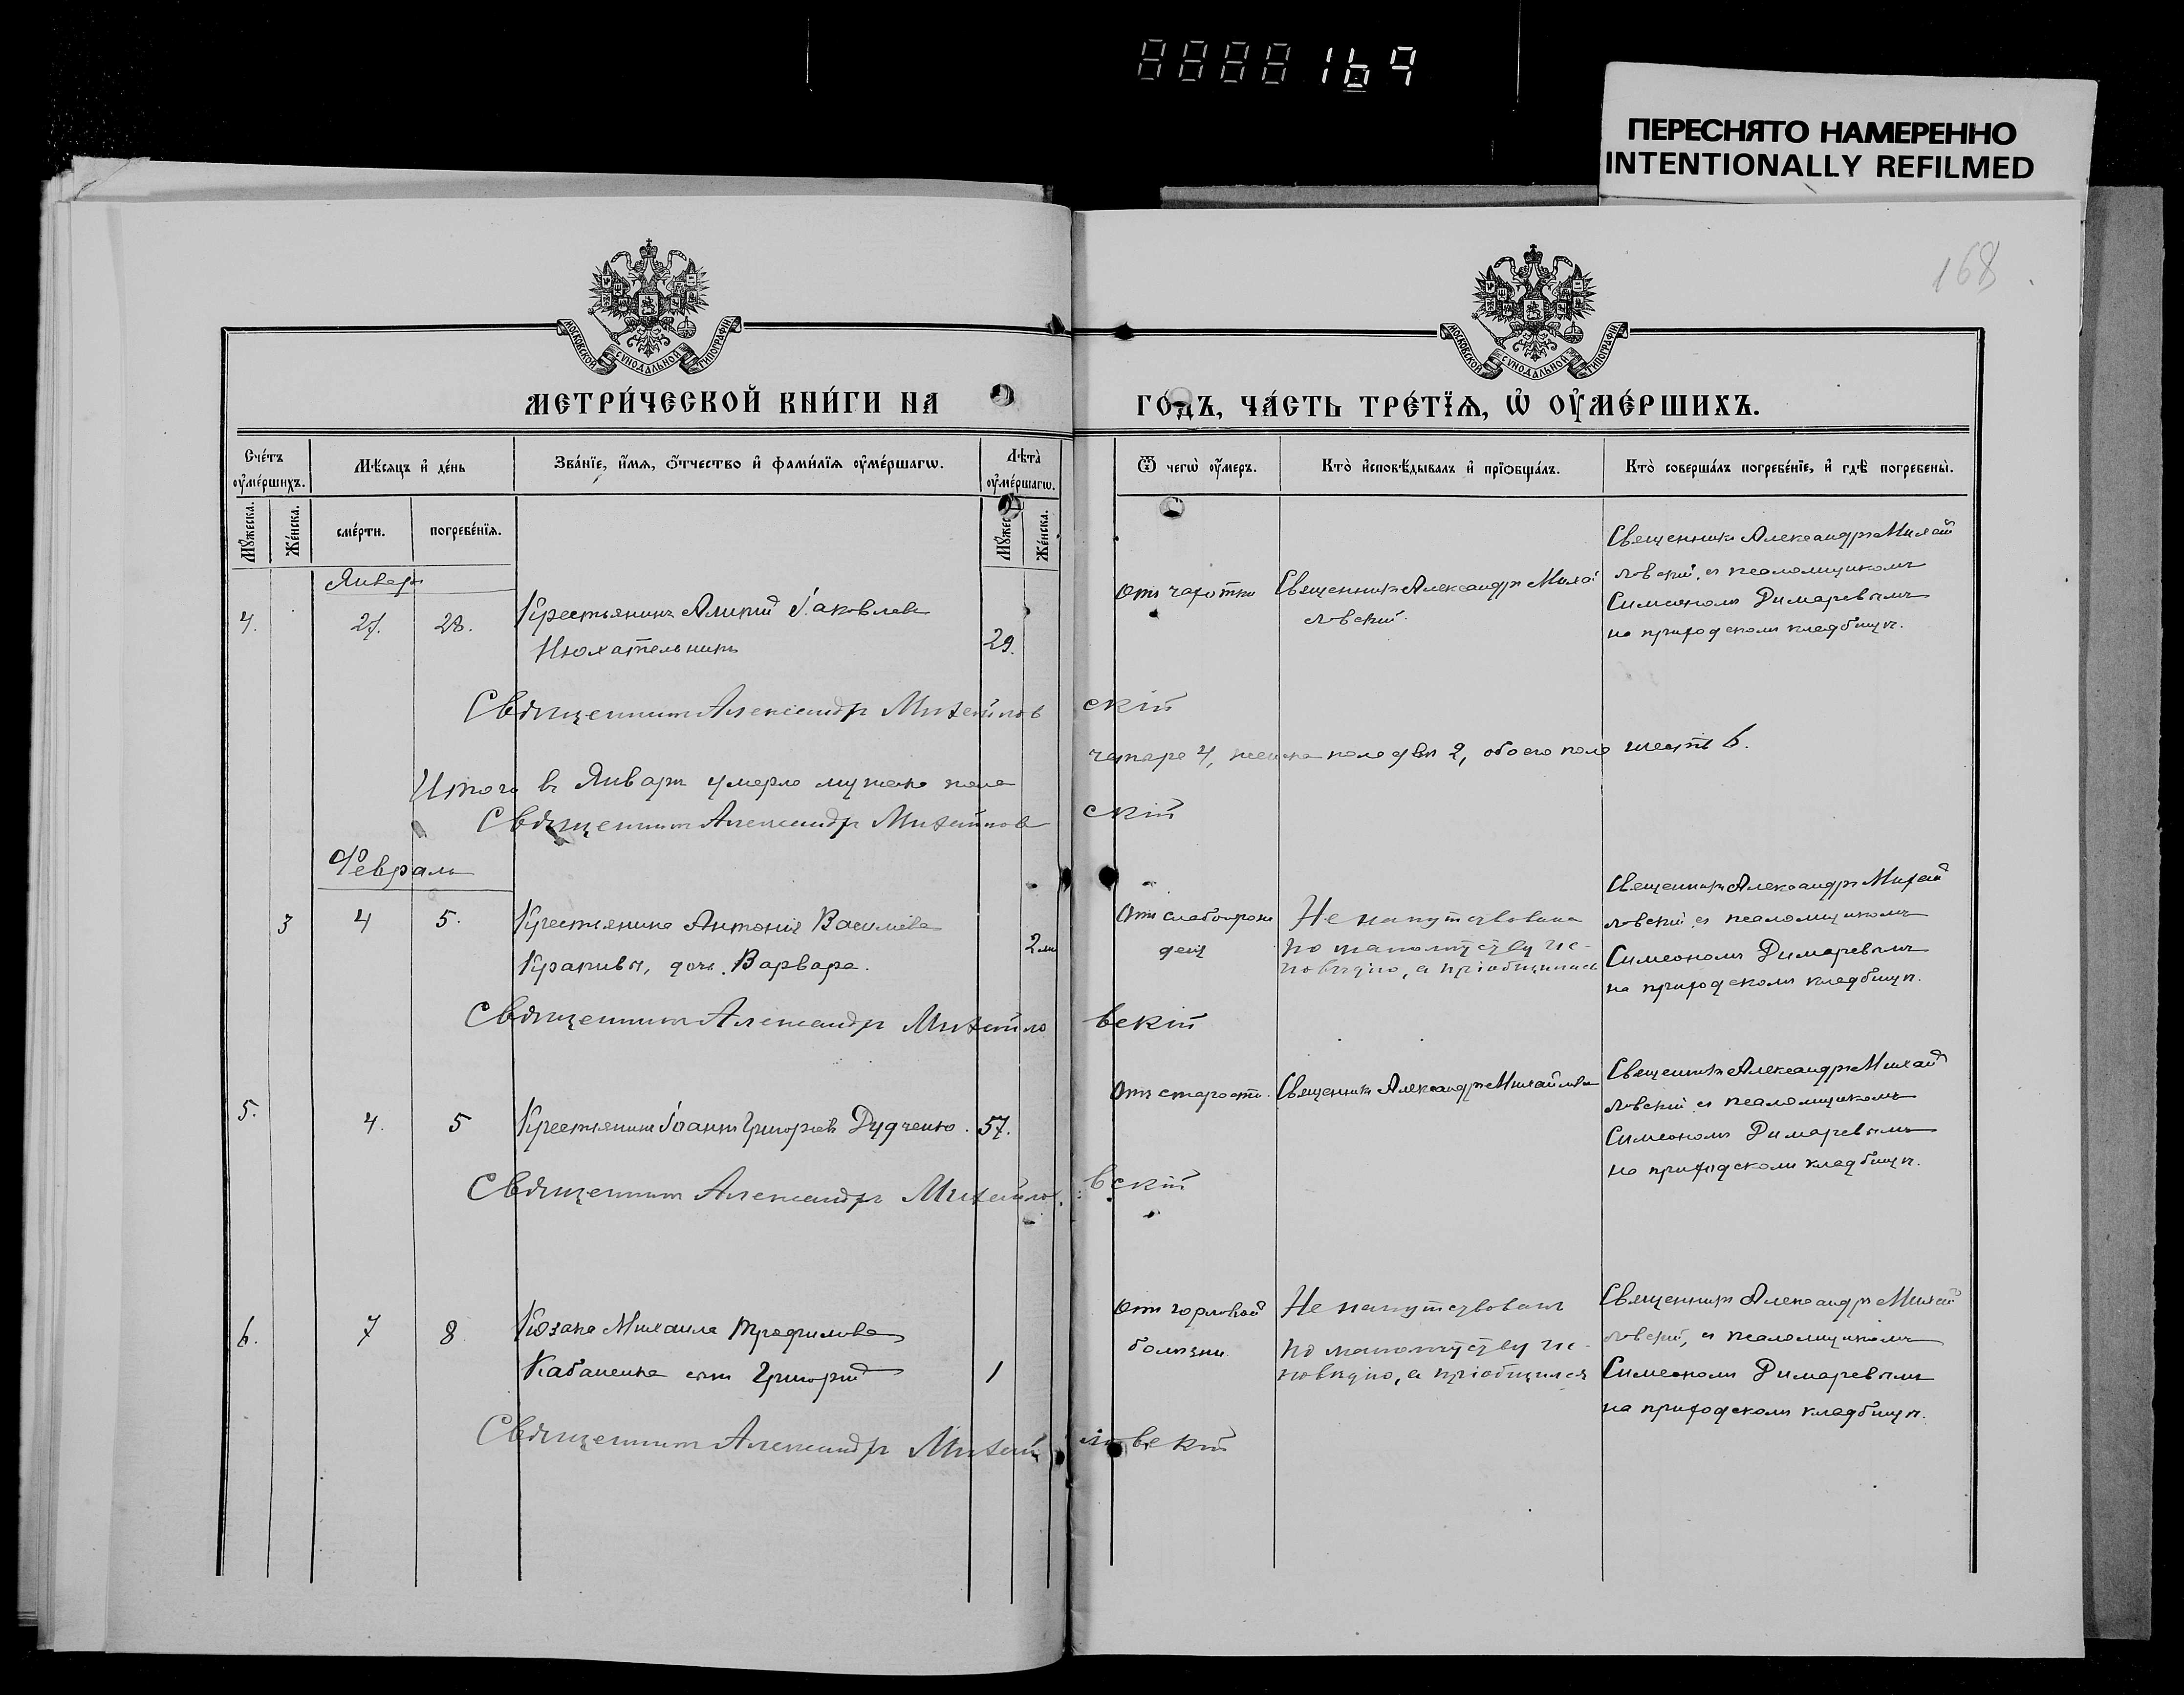 169
ПЕРЕСНЯТО НАМЕРЕННО
INTENTIONALLY REFILMED
168
МОСКОВСКОЙ СѴНОДАЛЬНОЙ ТИПОГРАФІИ
МОСКОВСКОЙ СѴНОДАЛЬНОЙ ТИПОГРАФІИ
МЕТРИ́ЧЕСКОЙ КНИ́ГИ НА
ГО́ДЪ, ЧА́СТЬ ТРЕ́ТЇѦ, Ѡ ОУ҆МЕ́РШИХЪ.
Сче́тъ оу҆ме́ршихъ.
Мѣ́сѧцъ и҆ де́нь
Зва́нїе, и҆́мѧ, ѻ҆́тчество и҆ фами́лїѧ оу҆ме́ршагѡ.
Лѣ́та оу҆ме́ршагѡ.
Ѿ чегѡ̀ оу҆́меръ.
Кто̀ и҆сповѣ́дывалъ и҆ прїѡбща́лъ.
Кто̀ соверша́лъ погребе́нїе, и҆ гдѣ̀ погребены̀.
Мꙋ́жеска.
Же́нска.
сме́рти.
погребе́нїѧ.
Мꙋ́жес
Же́нска.
Январь
4.
27.
28.
Крестьянинъ Алипій Іаковлевъ
Нюхательникъ
29.
Отъ чахотки
Священникъ Александръ Михай
ловскій.
Священникъ Александръ Михай
ловскій, съ псаломщикомъ
Симеономъ Димаревымъ
на приходскомъ кладбищѣ.
Священникъ Александръ Михайловскій
Итого въ Январѣ умерло мужеска пола четыре 4, женска пола двѣ 2, обоего пола шесть 6.
Священникъ Александръ Михайловскій
Февраль
3
4
5.
Крестьянина Антонія Василіева
Крапивы, дочь Варвара.
2 м
Отъ слаборожде
Не напутствована
по малолѣтству ис-
повѣдію, а пріобщилась
Священникъ Александръ Михай
ловскій, съ псаломщикомъ
Симеономъ Димаревымъ
на приходскомъ кладбищѣ.
Священникъ Александръ Михайловскій
5.
4.
5
Крестьянинъ Іоаннъ Григорьевъ Дудченко.
57.
Отъ старости.
Священникъ Александръ Михайловск
Священникъ Александръ Михай
ловскій, съ псаломщикомъ
Симеономъ Димаревымъ
на приходскомъ кладбищѣ.
Священникъ Александръ Михайловскій
6.
7
8.
Козака Михаила Трофимова
Кабаненка сынъ Григорій
1
Отъ горловой
болѣзни.
Не напутствованъ
по малолѣтству ис-
повѣдію, а пріобщился
Священникъ Александръ Михай
ловскій, съ псаломщикомъ
Симеономъ Димаревымъ
на приходскомъ кладбищѣ.
Священникъ Александръ Михайловскій